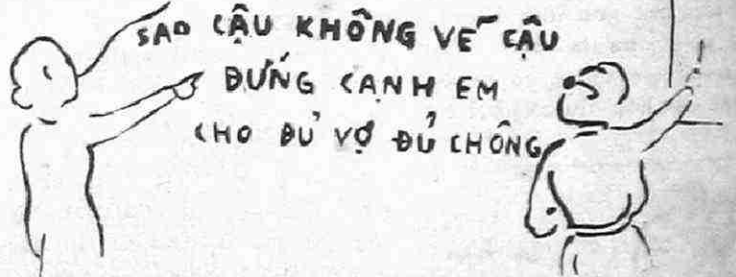 SAO CẬU KHÔNG VẼ CẬU
ĐỨNG CẠNH EM
CHO ĐỦ VỢ ĐỦ CHỒNG